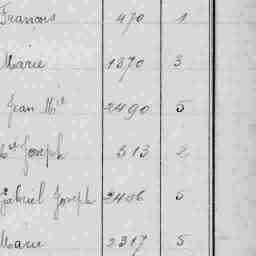 François 470 1
Marie 1370 3
Jean Mie 2490 5
Joseph 513 2
Gabriel Joseph 2456 5
Marie 2317 5